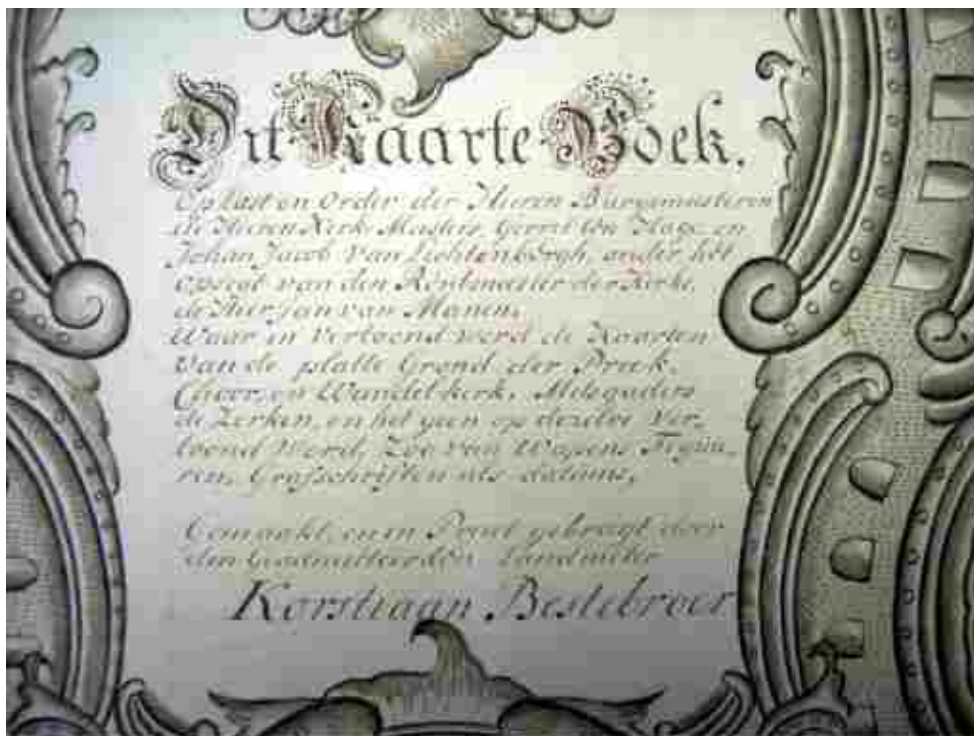 Dit Kaarte Boek.
Op last en Order der Heeren Burgemeesteren
de Heeren Kerk Masters, Gerrit ten Hage en
Johan Jacob Van Lichtenbergh, onder het
opsigt van den Rentmeester der Kerke
de Heer Jan van Manen,
Waar in Vertoond werd de Kaarten
Van de platte Grond der Preek,
Choor, en Wandel-kerk, Mitsgaders
de Zerken, en het geen op dezelve Ver-
toond Word, Zoo van Wapens Figuu-
ren, Grafschriften als datums,
Gemaakt, en in Prent gebragt door
den Landmeter
Korstiaan Bestebroer